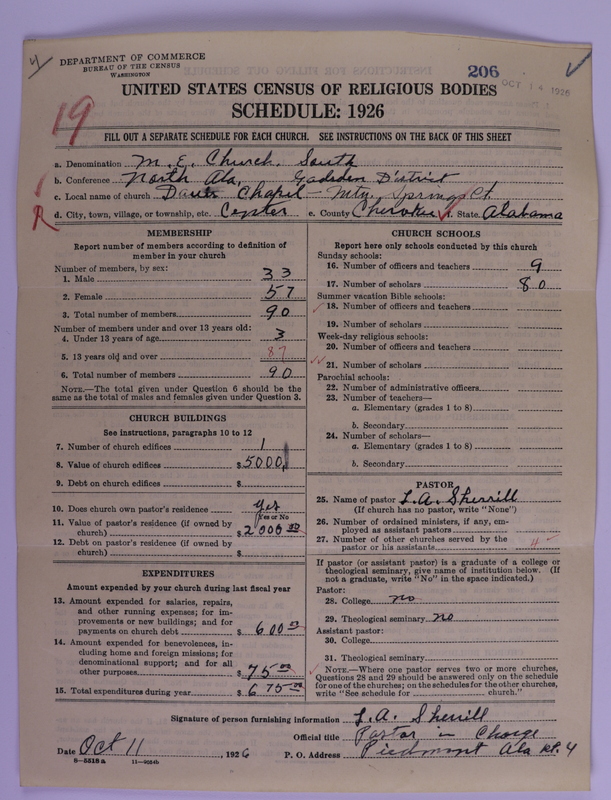 4
DEPARTMENT OF COMMERCE
BUREAU OF THE CENSUS
WASHINGTON
206
OCT 14 1926
UNITED STATES CENSUS OF RELIGIOUS BODIES
SCHEDULE: 1926
19
FILL OUT A SEPARATE SCHEDULE FOR EACH CHURCH. SEE INSTRUCTIONS ON THE BACK OF THIS SHEET
a. Denomination M. E. Church, South
b. Conference North Ala. Gadsden District
c. Local name of church Chapil - Mtn Springs Ct
R
d. City, town, village, or township, etc. Center e. County Cherokee f. State Alabama
MEMBERSHIP
Report number of members according to definition of member in your church
Number of members, by sex:
1. Male 33
2. Female 57
3. Total number of members 90
Number of members under and over 13 years old:
4. Under 13 years of age 3
5. 13 years old and over 87
6. Total number of members 90
NOTE.—The total given under Question 6 should be the same as the total of males and females given under Question 3.
CHURCH BUILDINGS
See instructions, paragraphs 10 to 12
7. Number of church edifices 1
8. Value of church edifices $5000
9. Debt on church edifices $
10. Does church own pastor's residence Yes
Yes or No
11. Value of pastor's residence (if owned by church) $2000 00
12. Debt on pastor's residence (if owned by church) $
EXPENDITURES
Amount expended by your church during last fiscal year
13. Amount expended for salaries, repairs, and other running expenses; for improvements or new buildings; and for payments on church debt $600 00
14. Amount expended for benevolences, including home and foreign missions; for denominational support; and for all other purposes $75 00
15. Total expenditures during year $675 00
CHURCH SCHOOLS
Report here only schools conducted by this church
Sunday schools:
16. Number of officers and teachers 9
17. Number of scholars 80
Summer vacation Bible schools:
18. Number of officers and teachers
19. Number of scholars
Week-day religious schools:
20. Number of officers and teachers
21. Number of scholars
Parochial schools:
22. Number of administrative officers
23. Number of teachers—
a. Elementary (grades 1 to 8)
b. Secondary
24. Number of scholars—
a. Elementary (grades 1 to 8)
b. Secondary
PASTOR
25. Name of pastor L. A. Sherrill
(If church has no pastor, write "None")
26. Number of ordained ministers, if any, employed as assistant pastors
27. Number of other churches served by the pastor or his assistants 4
If pastor (or assistant pastor) is a graduate of a college or theological seminary, give name of institution below. (If not a graduate, write "No" in the space indicated.)
Pastor:
28. College no
29. Theological seminary no
Assistant pastor:
30. College
31. Theological seminary
NOTE.—Where one pastor serves two or more churches, Questions 28 and 29 should be answered only on the schedule for one of the churches; on the schedules for the other churches, write "See schedule for ______ church."
Signature of person furnishing information L. A. Sherrill
Official title Pastor in Charge
Date Oct 11, 1926 P. O. Address Piedmont Ala Rt. 4
8-5518a 11-9024b